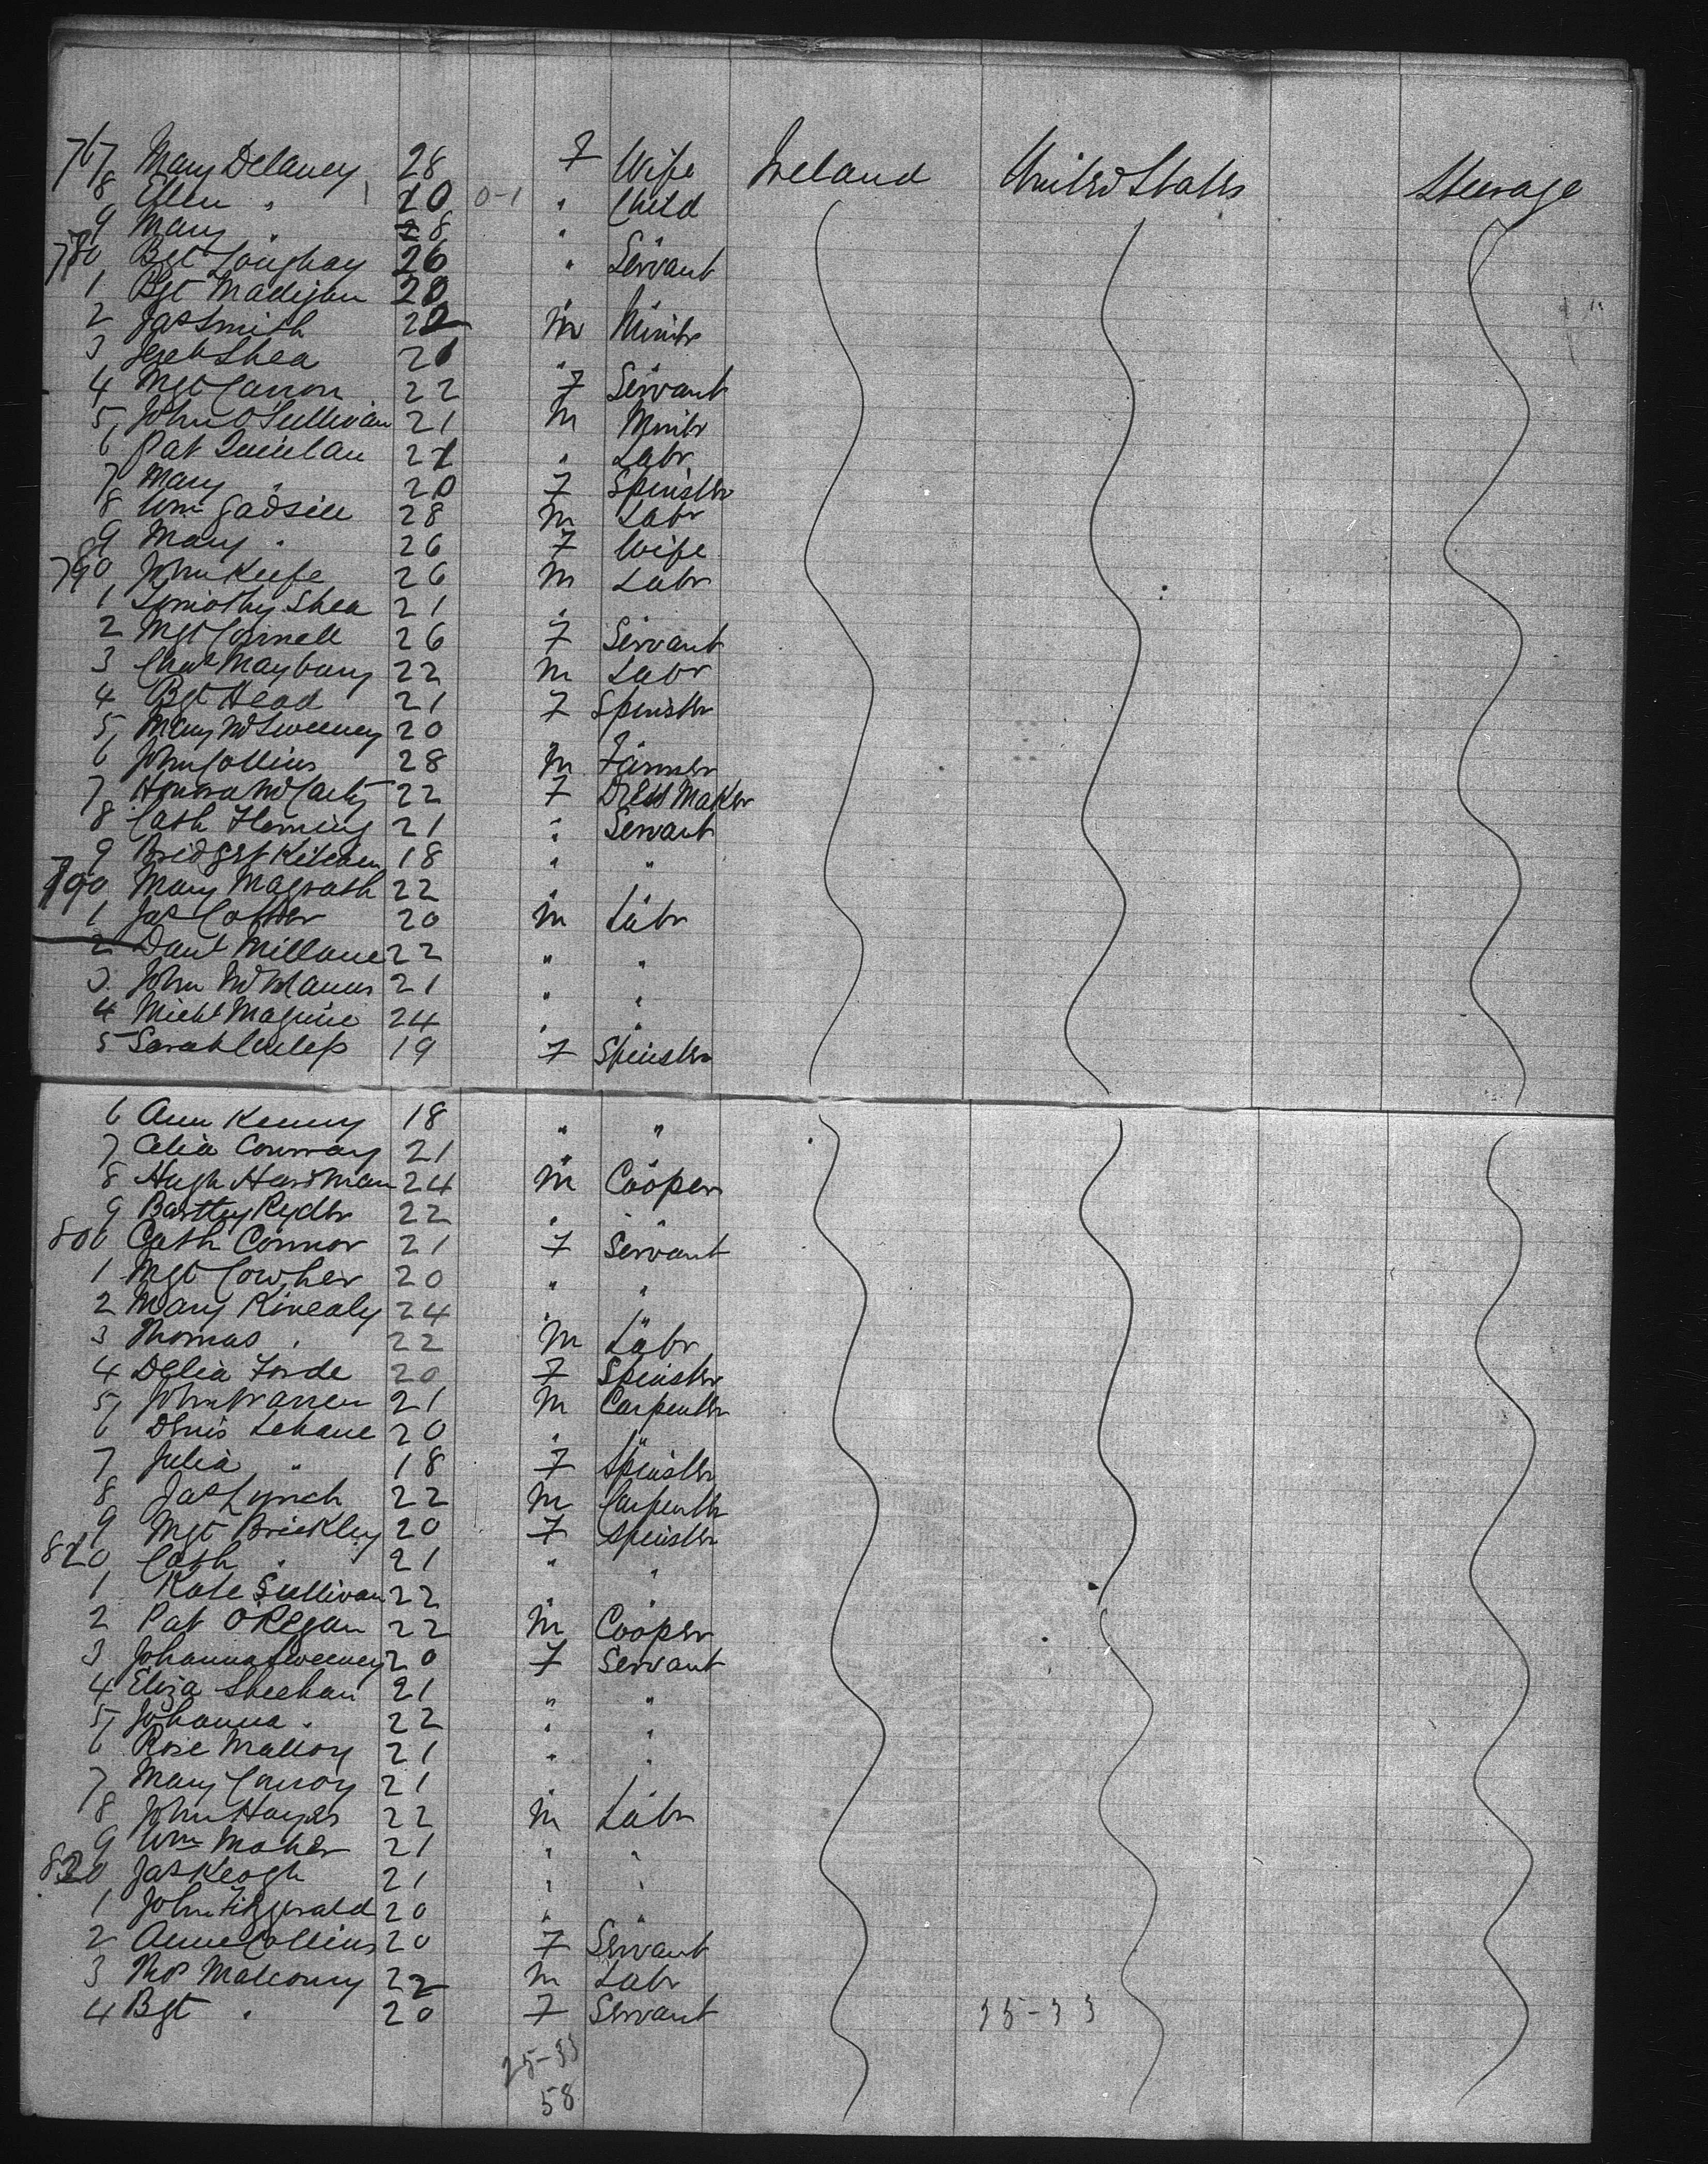 767 Mary Delaney 28 F Wife Ireland United States Steerage
8 Ellen " 10 0-1 " Child
9 Mary " 8 "
780 Bgt 26 " Servant
1 Bgt Madigan 20 "
2 Jas Smith 22 M Miner
3 Shea 21 "
4 Mgt Carron 22 F Servant
5 John O'Sullivan 21 M Miner
6 Pat Quinlan 21 " Labr
7 Mary " 20 F Spinster
8 Wm Gadsill 28 M Labr
9 Mary " 26 F Wife
790 John Keefe 26 M Labr
1 Timothy Shea 21 "
2 Mgt Connell 26 F Servant
3 Chas Maybury 22 M Labr
4 Bgt Head 21 F Spinster
5 Mary McSweeney 20 "
6 John Collins 28 M Farmer
7 Honora McCarty 22 F Dress Maker
8 Cath Fleming 21 " Servant
9 Bridget Kitchen 18 " "
790 Mary Magrath 22 "
1 Jas Cotter 20 M Labr
2 Danl Millane 22 " "
3 John McManus 21 " "
4 Michl Maguire 24 " "
5 Sarah 19 F Spinster
6 Ann Kenny 18 " "
7 Celia Conway 21 "
8 Hugh Hardiman 24 M Cooper
9 Bartley Ryder 22 " "
800 Cath Connor 21 F Servant
1 Mgt Cowher 20 " "
2 Mary Kinealy 24 " "
3 Thomas " 22 M Labr
4 Delia Forde 20 F Spinster
5 John Warren 21 M Carpenter
6 Denis Lehane 20 " "
7 Julia " 18 F Spinster
8 Jas Lynch 22 M Carpenter
9 Mgt Brickley 20 F Spinster
810 Cath " 21 " "
1 Kate Sullivan 22 " "
2 Pat O'Regan 22 M Cooper
3 Johanna Sweeney 20 F Servant
4 Eliza Sheehan 21 " "
5 Johanna " 22 " "
6 Rose Malloy 21 " "
7 Mary Conroy 21 "
8 John Hayes 22 M Labr
9 Wm Maher 21 " "
820 Jas Keogh 21 " "
1 John Fitzgerald 20 " "
2 Anne Collins 20 F Servant
3 Thos Maloney 22 M Labr
4 Bgt " 20 F Servant
25-33
58